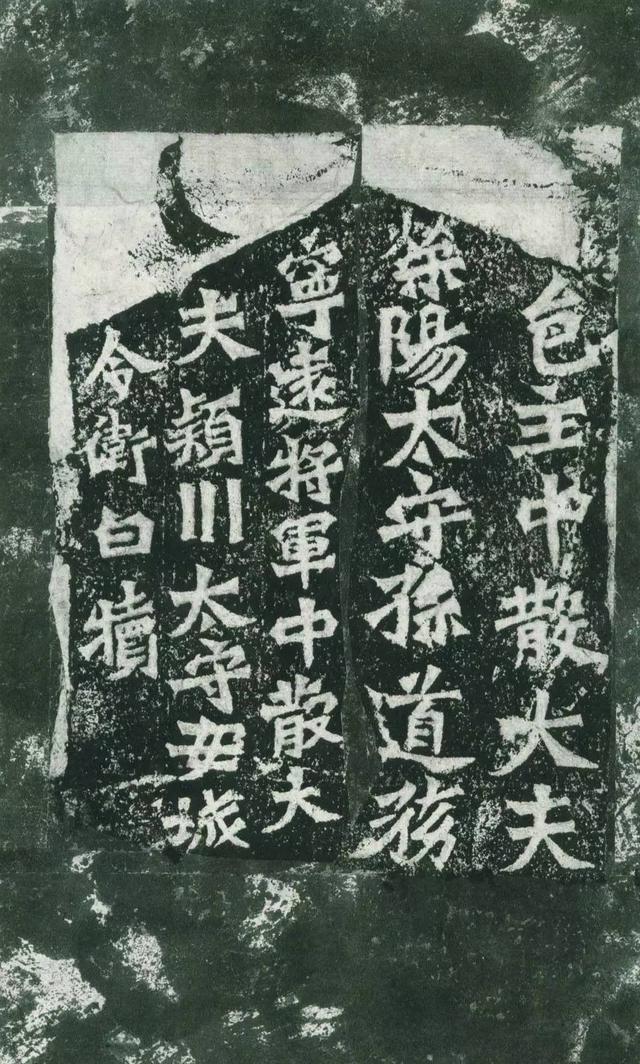 邑主中散大夫
滎陽太守孫道務
寧遠將軍中散大
夫潁川太守安城
令衛白犢